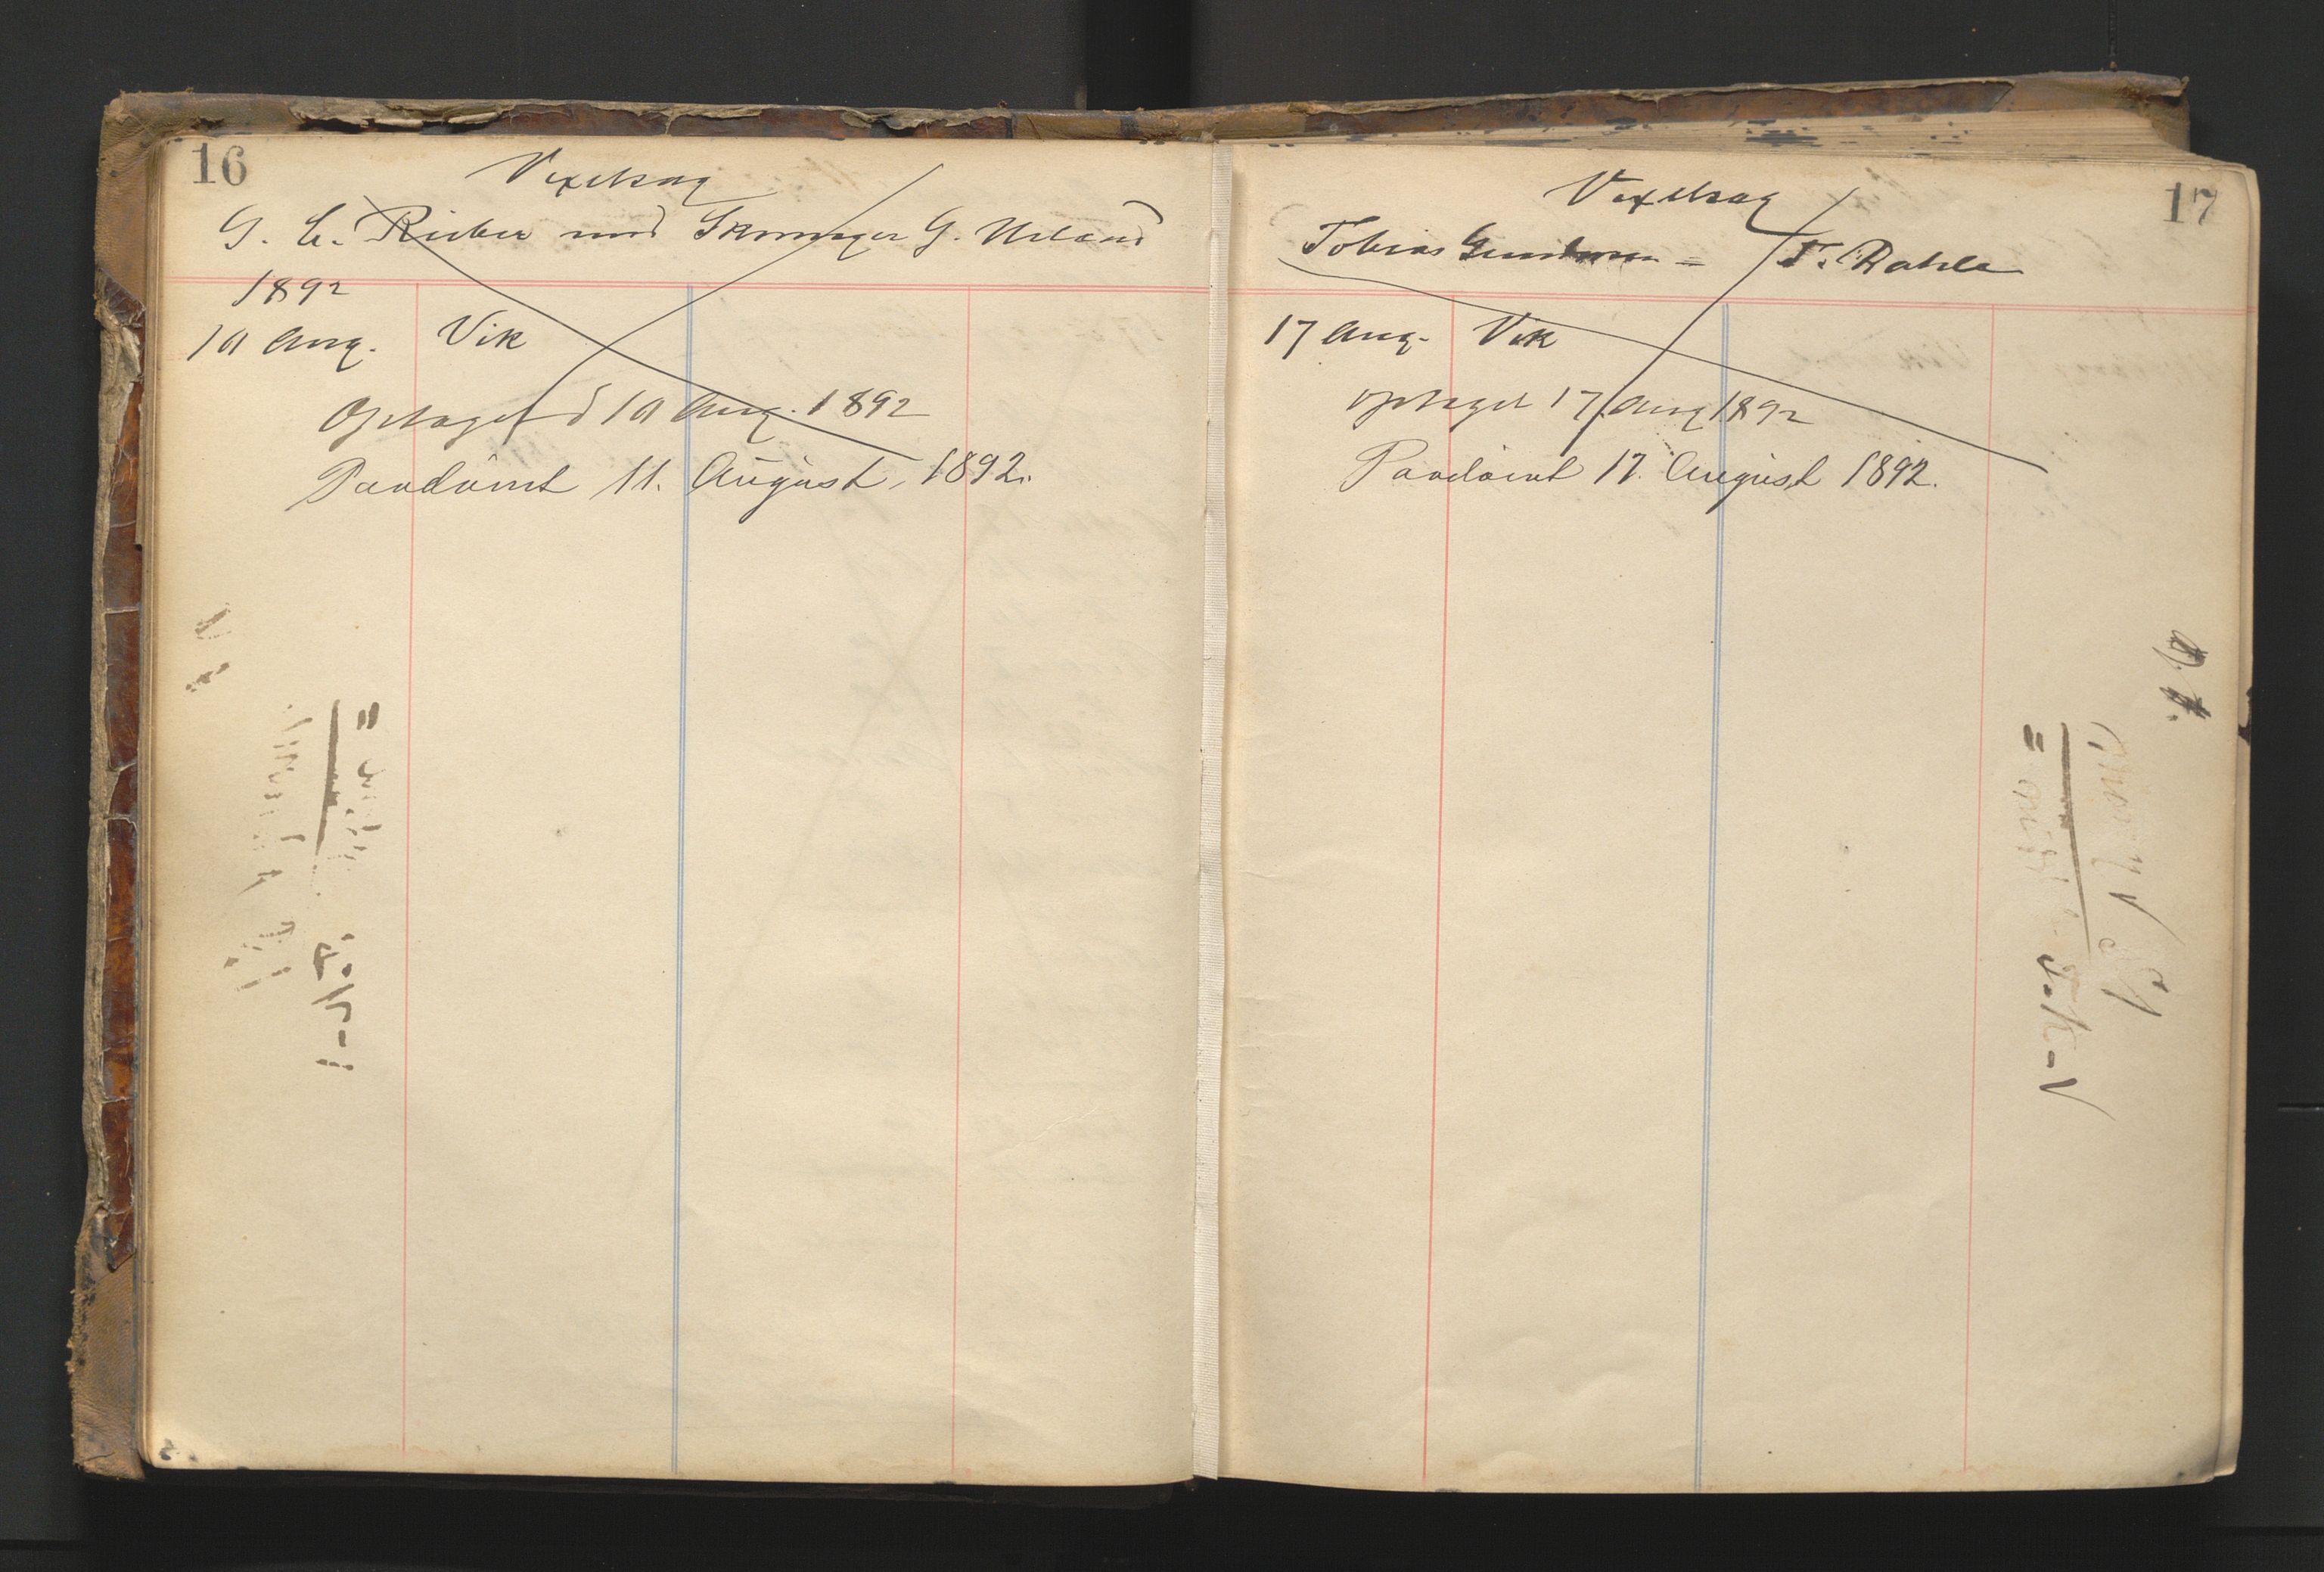 16
Vexelsag
G. C. Rieber mod Skomager G. Urland
1892
10 Aug. Vik
Optaget d 10 Aug. 1892
Paadømt 11. August, 1892.
17
Vexelsag
Tobias = T. Rahle
17 Aug. Vik
optaget 17 Aug 1892
Paadømt 17. August 1892.